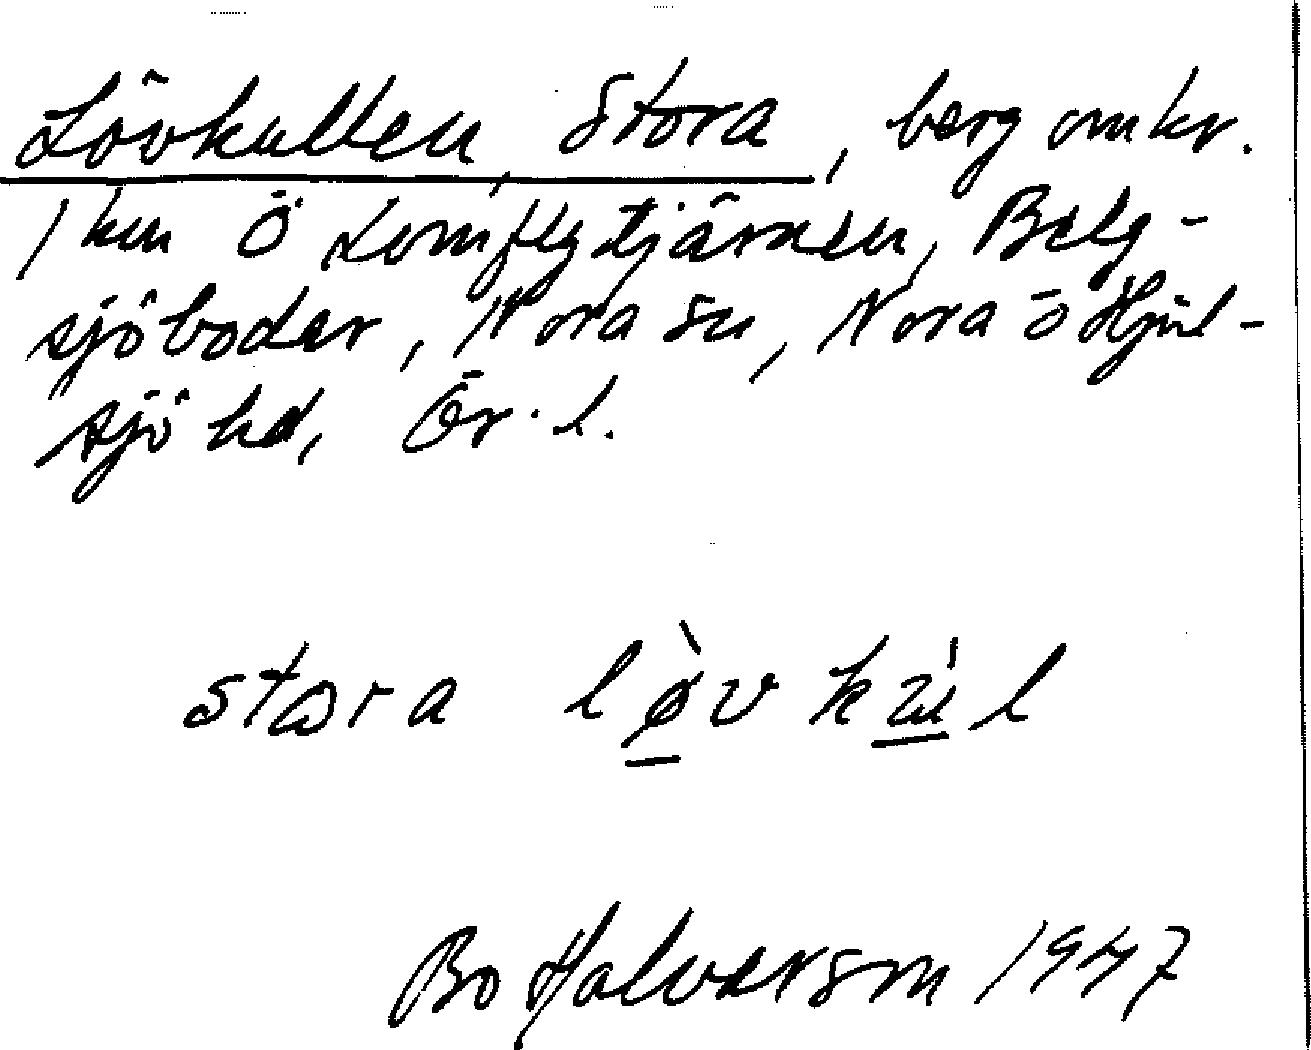 Lövkullen, Stora, berg omkr.
1 km Ö Lomflytjärnen, Belg-
sjöbodar, Nora sn, Nora o Hjul-
sjö hd, Ör. l.
stora løvkul
Bo Halvarson 1947